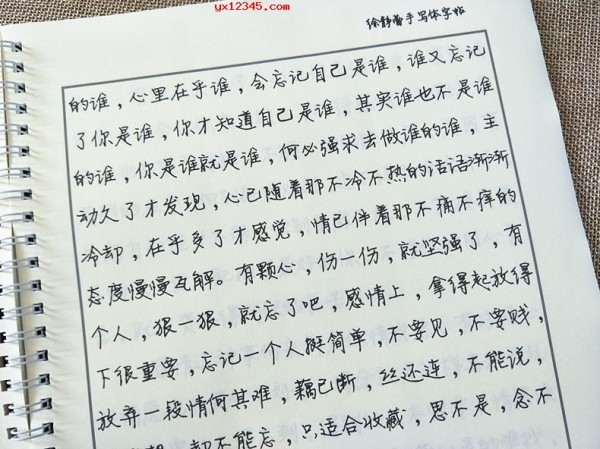 yx12345.com
徐静蕾手写体字帖
的谁，心里在乎谁，会忘记自己是谁，谁又忘记
了你是谁，你才知道自己是谁，其实谁也不是谁
的谁，你是谁就是谁，何必强求去做谁的谁，主
动久了才发现，心已随着那不冷不热的话语渐渐
冷却，在乎多了才感觉，情已伴着那不痛不痒的
态度慢慢瓦解。有颗心，伤一伤，就坚强了，有
个人，狠一狠，就忘了吧，感情上，拿得起放得
下很重要，忘记一个人挺简单，不要见，不要贱，
放弃一段情何其难，藕已断，丝还连，不能说，
却不能忘，只适合收藏，思不是，念不